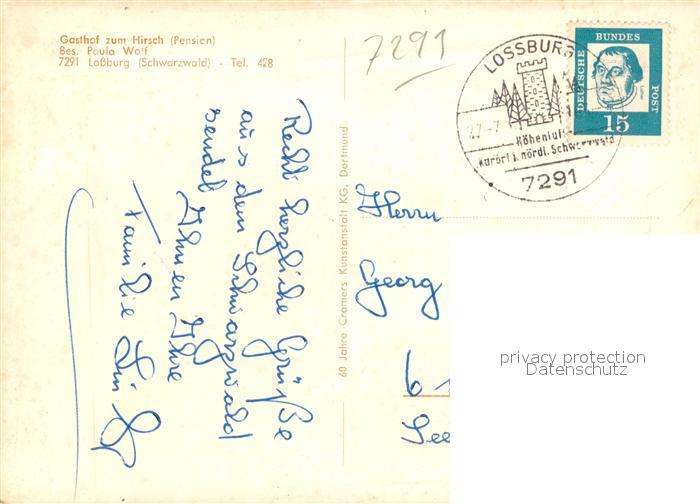 Gasthof zum Hirsch (Pension)
Bes. Paula Wolf
7291 Loßburg (Schwarzwald) - Tel. 428
7291
LOSSBURG
27.-7
Höhenluft
Kurort i. nördl. Schwarzwald
7291
DEUTSCHE BUNDES POST
15
Recht herzliche Grüße
aus dem Schwarzwald
sendet Ihnen Ihre
Familie
60 Jahre Cramers Kunstanstalt KG, Dortmund
Herrn
Georg
6
See
privacy protection
Datenschutz